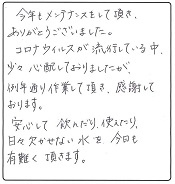 今年もメンテナンスをして頂き、
ありがとうございました。
コロナウイルスが流行している中、
少々心配しておりましたが、
例年通り作業して頂き、感謝して
おります。
安心して飲んだり、使えたり、
日々欠かせない水を今日も
有難く頂きます。